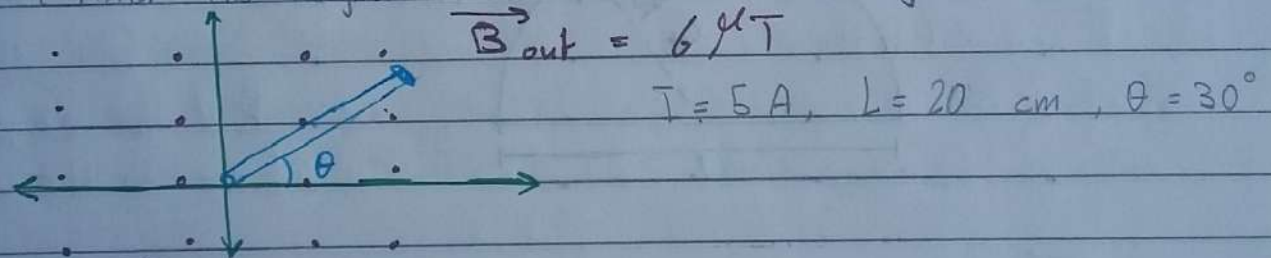 B out = 6 μT
I = 5 A, L = 20 cm, θ = 30°
θ